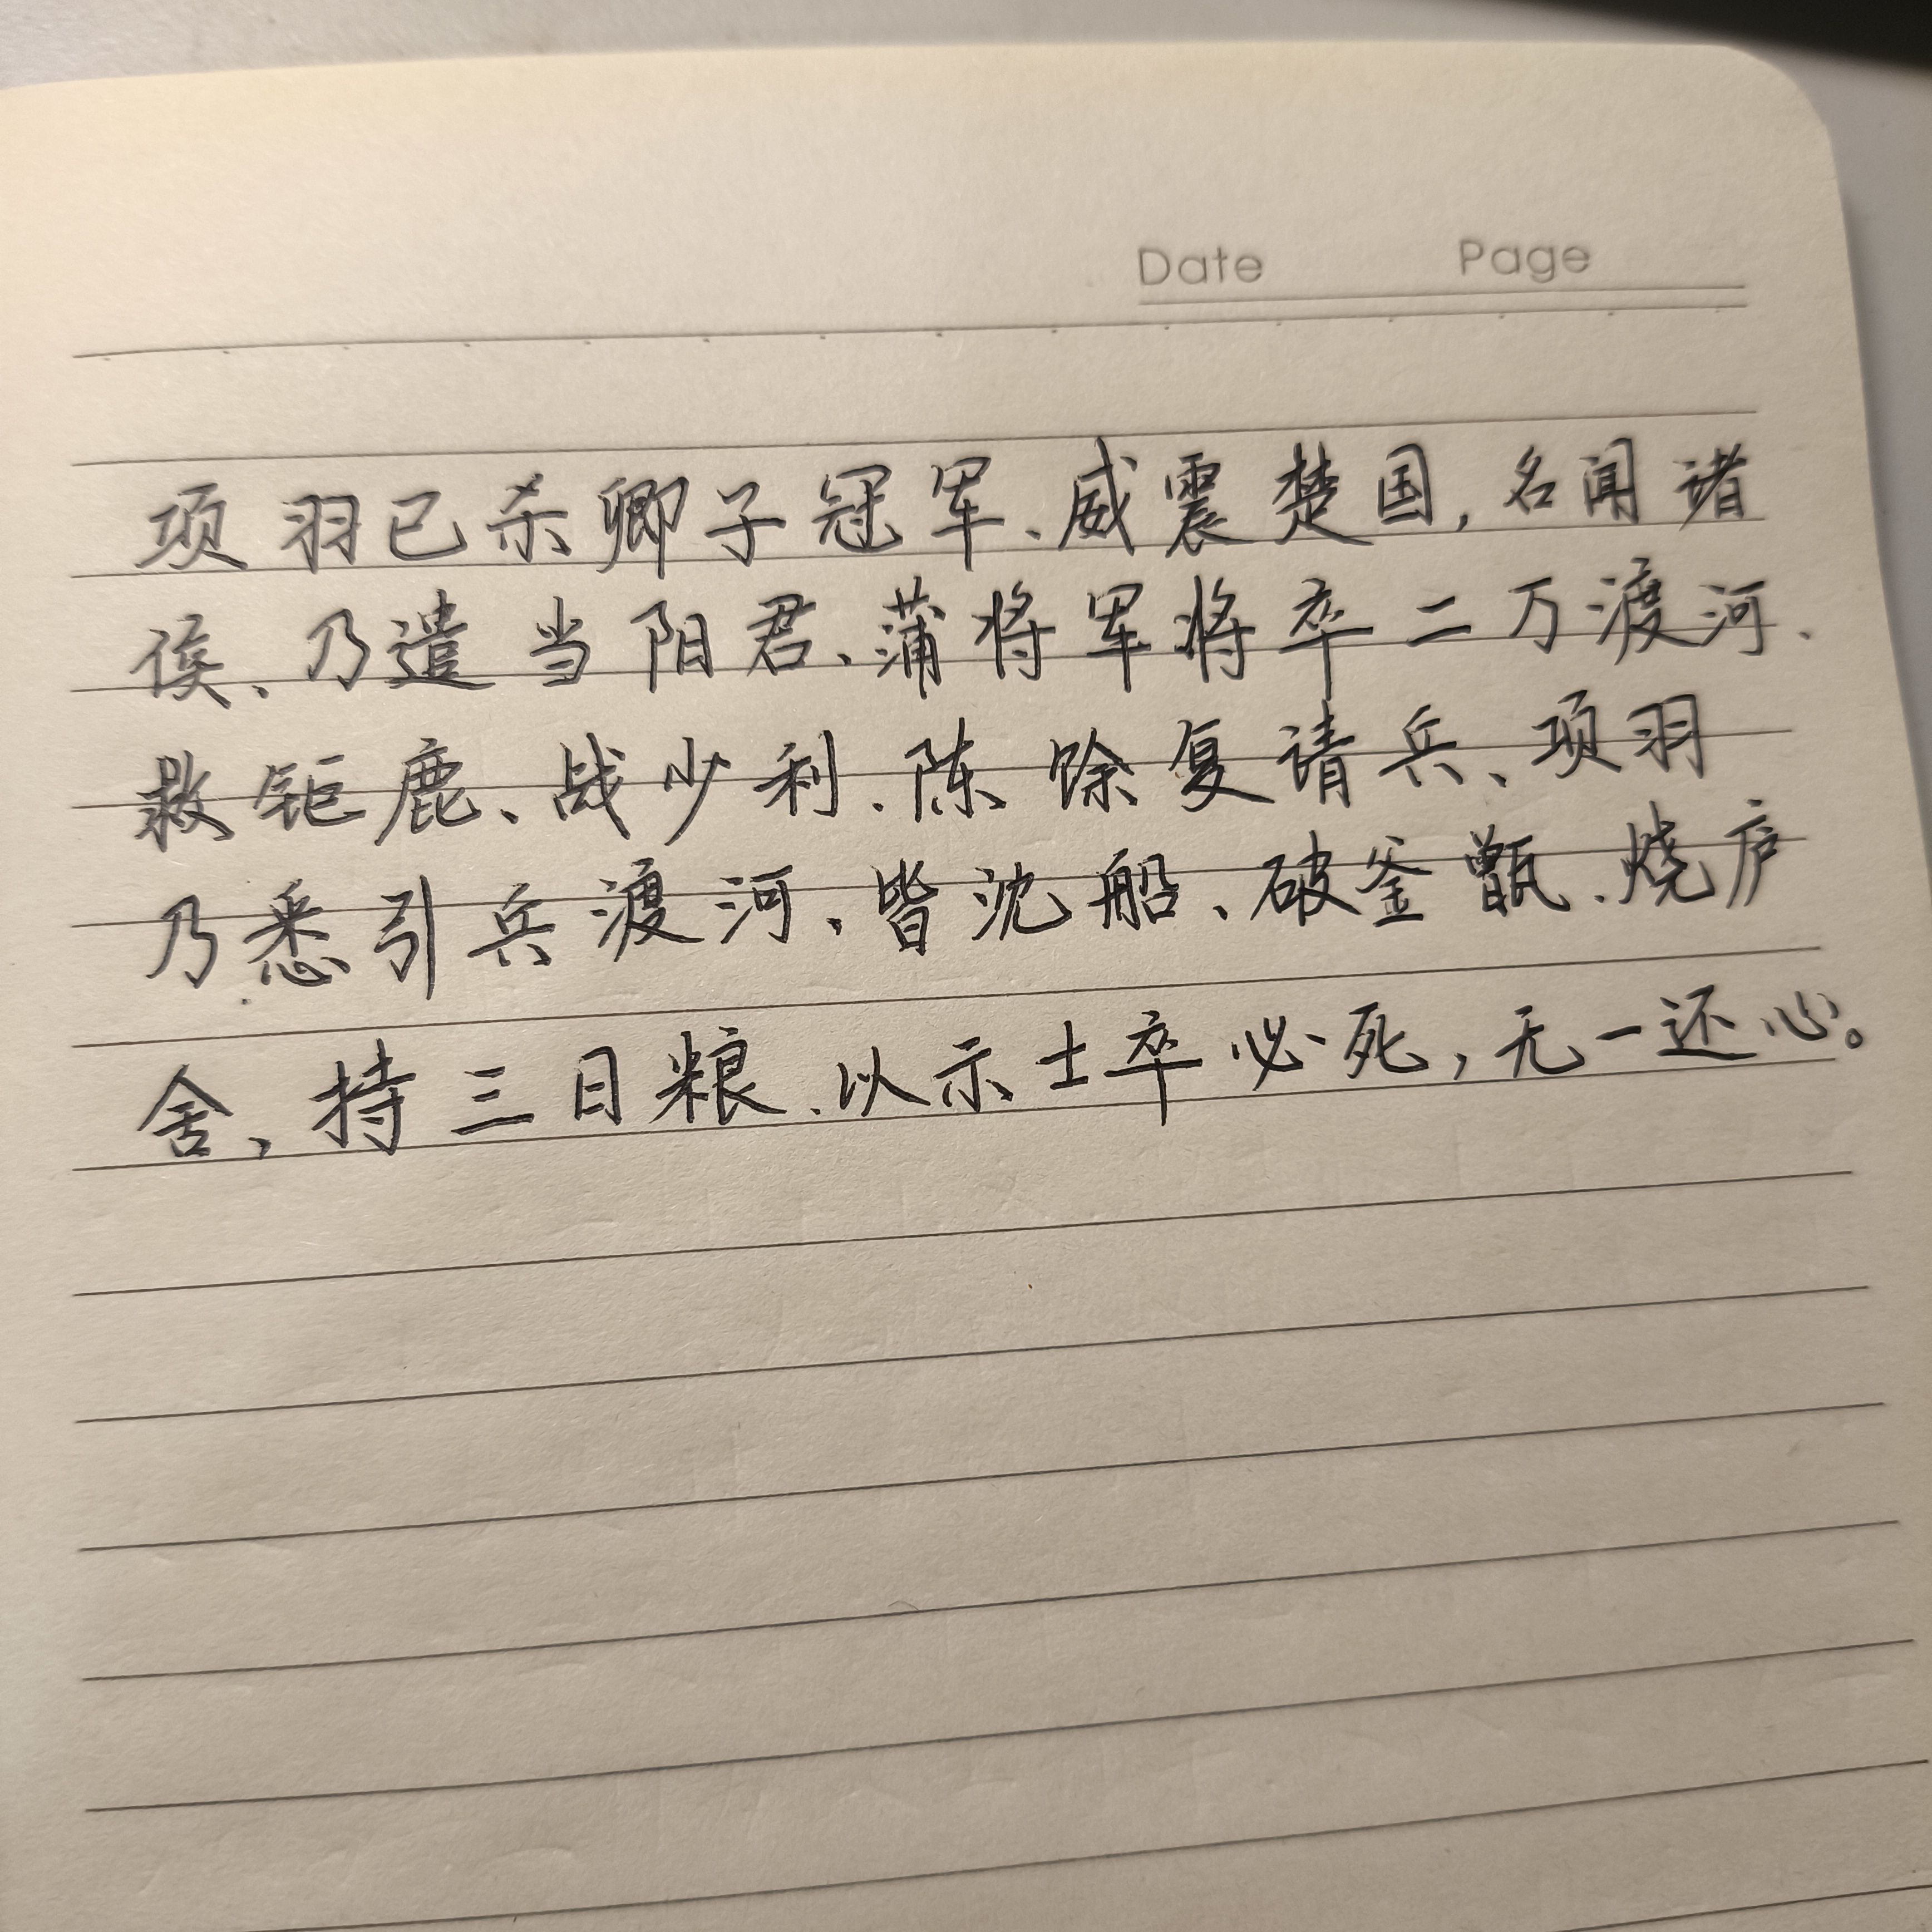 Date Page
项羽已杀卿子冠军、威震楚国,名闻诸
侯、乃遣当阳君、蒲将军将卒二万渡河、
救钜鹿、战少利、陈馀复请兵、项羽
乃悉引兵渡河、皆沈船、破釜甑、烧庐
舍、持三日粮、以示士卒必死,无一还心。